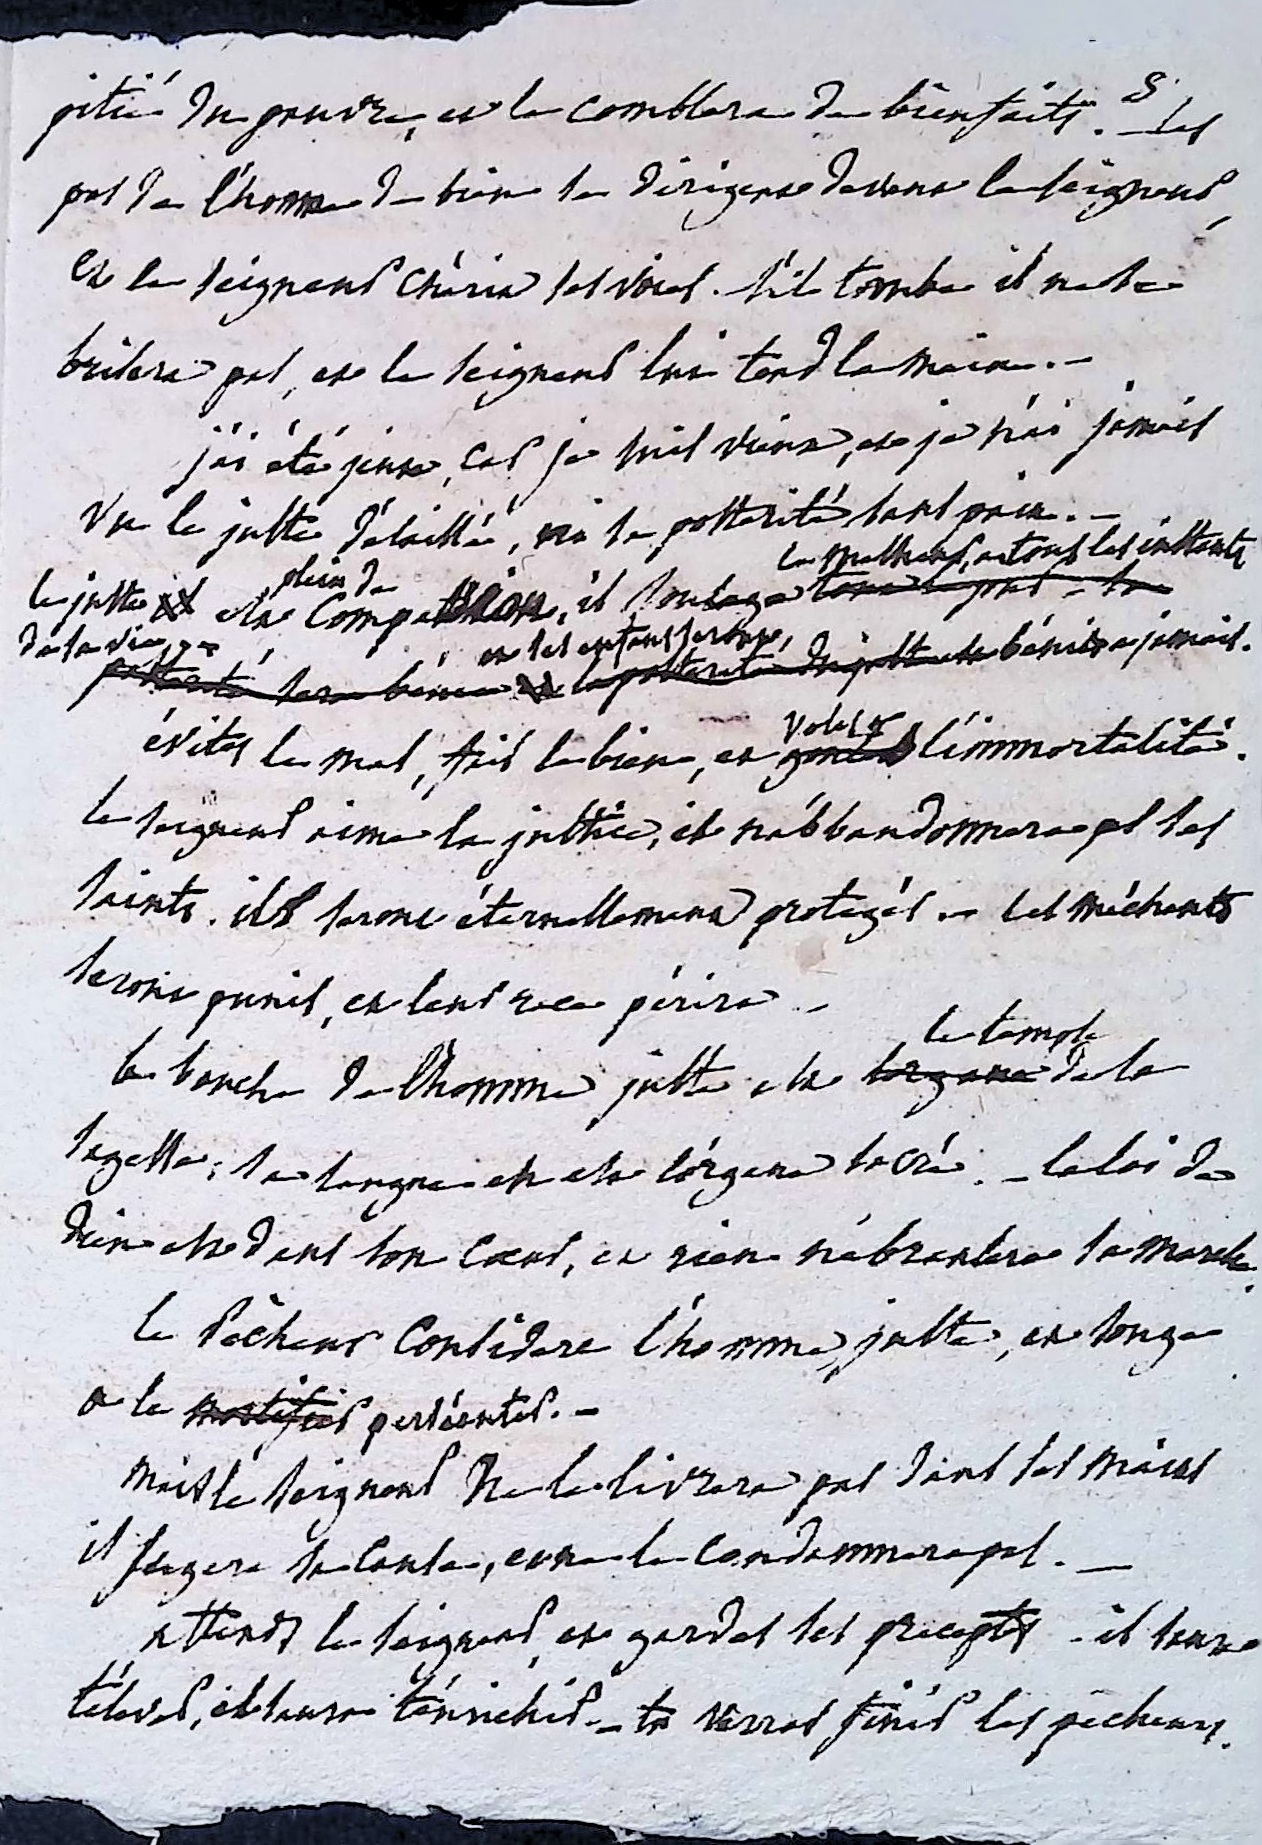 pitié du pauvre, et le comblera de bienfaits. – les
pas de l'homme de bien se dirigent devant le seigneur,
et le seigneur chérit ses voies. s'il tombe il ne se
brisera pas, et le seigneur lui tend la main. –
j'ai été jeune, car je suis vieux, et je n'ai jamais
vu le juste délaissé, ni sa postérité sans pain. –
le malheur, et tous les instants
plein de
le juste est compassion, il soulage tous les jours – sa
de sa vie, et ses enfants seront
postérité sera bénie la postérité du juste est bénis a jamais.
voles a
évites le mal, fais le bien, et l'immortalité.
le seigneur aime la justice, et n'abbandonnera pas ses
saints. ils seront éternellement protegés. – les méchants
seront punis, et leur race périra –
le temple
la bouche de l'homme juste est l'organe de la
sagesse, sa langue en est l'organe sacré. – la loi de
dieu est dans son cœur, et rien n'ébranlera sa marche.
le pêcheur considere l'homme juste, et songe
a le mortifier persécuter. –
mais le seigneur ne le livrera pas dans ses mains
il jugera sa cause, et ne le condamnera pas. –
attends le seigneur, et gardes ses preceptes – il saura
t'élever, il saura t'enrichir. – tu verras finir les pecheurs.